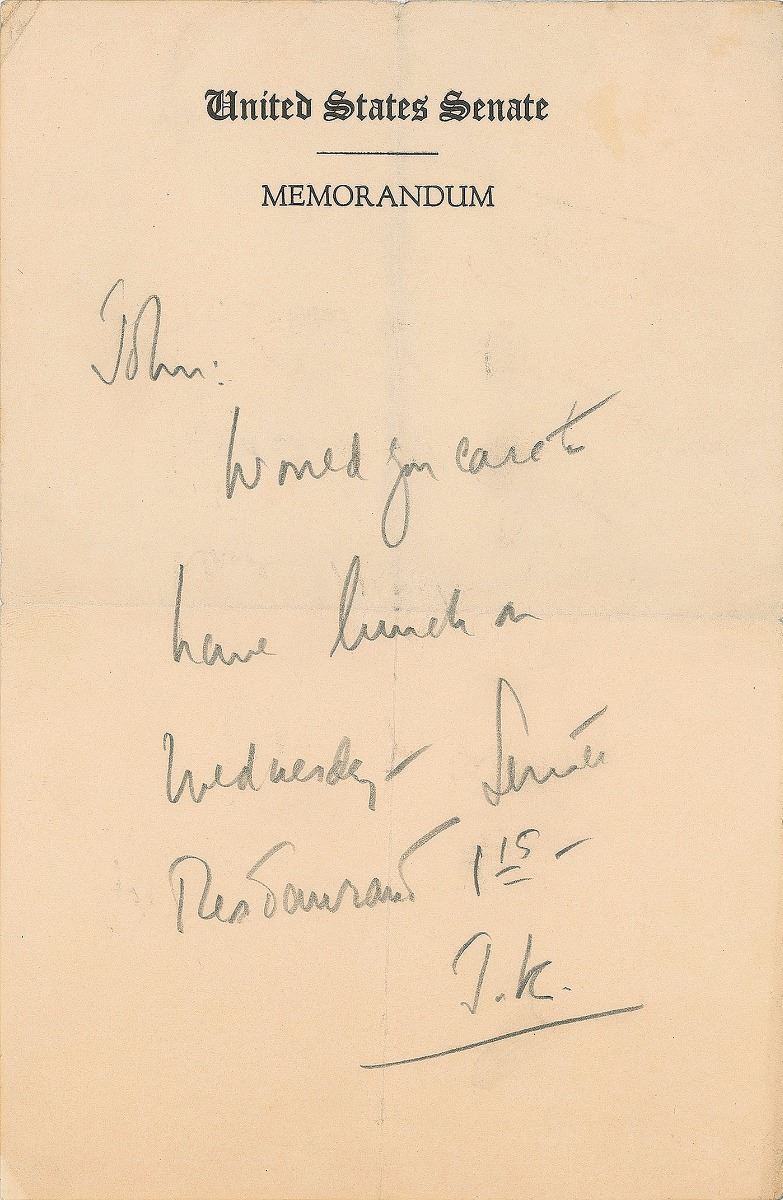 United States Senate
MEMORANDUM
John:
Would you care to
have lunch on
Wednesday - Senate
Restaurant 1 15 -
J.K.